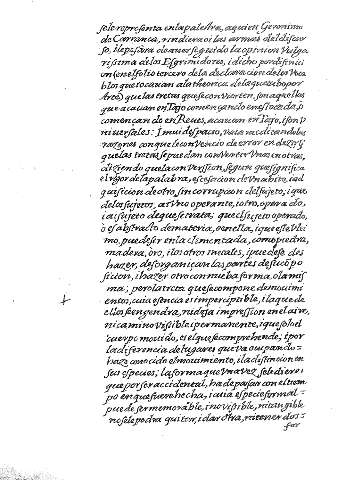 sele representa en la palestra, a quien Geronimo
de Carranca, rindiera las armas del discur
so, i le pesara de aver seguido la opinion Vulga
rissima de los Esgrimidores, i dicho por difinici
on en el folio tercero de la declaracion de los Voca
blos que tocavan a la theorica de la question por
Arco) que las tretas que se convierten, son aquellas
que acavan en Tajo començando en estocada, o
comiençan de en Reves, acavan en Tajo, i son V
niversales: I mui despacio, Vuta radicando las
razones con que le convenció de error en dezir
que las tretas se puedan convertir Vnas en otras,
diziendo que la conVersion, segun que significa
el rigor de la palabra, es cession de Vn abito, i ad
quisicion de otro, sin corrupcion del sujeto; i que
de los sujetos, ai Vno operante, i otro, operado,
i a i sujeto de que se trata; que el sujeto operado,
o es abstracto de materia, o en ella, i que este Vlti
mo, puede ser en la elementada, como piedra,
madera, oro, i los otros metales, i puede se des
hazer, desorganiçar las partes de su compo
sicion, i hazer otro con nueba forma, o la mis
ma; pero la treta que se compone de movimi
entos, cuia esencia es imperceptible, i la que de
ellos se engendra, ni deja impression en el aire,
ni camino Visible i permanente, i que solo el
cuerpo movido, es el que se comprehende; i por
la diferencia de lugares que va ocupando=
haze conocido el movimiento, i la distincion en
sus especies; la forma que Vna vez se le diere i
que por ser accidental, ha de passar con el tiem
po en que fuere hecha, i cuia especie formal=
puede ser memorable, i no visible, ni tangible
no se le podrá quitar, i dar otra, ni tener dis=
for